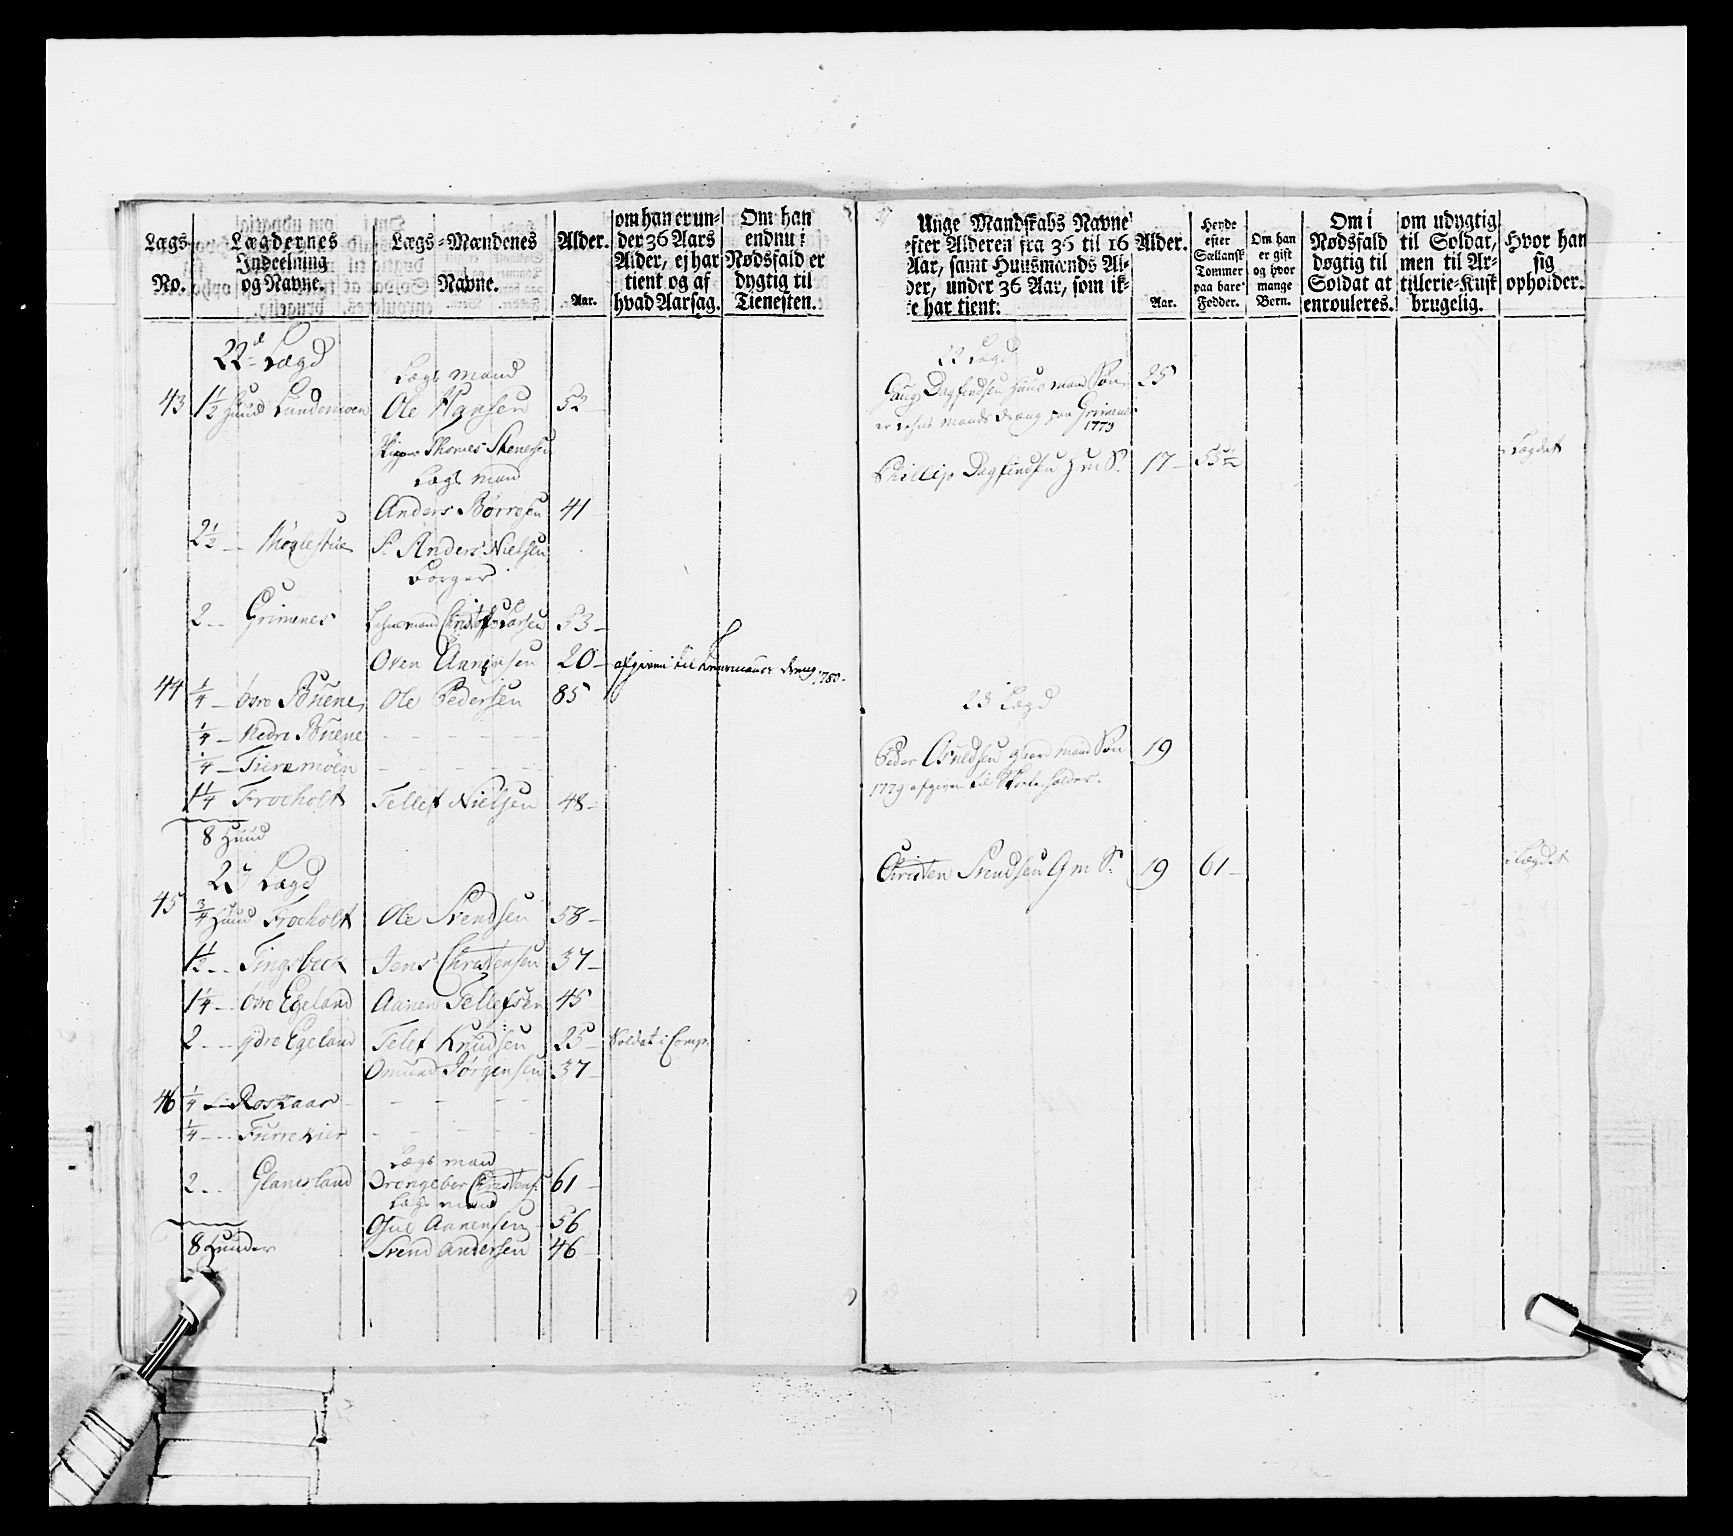 Lægs
No.
Lægdernes
Indeelning
og Navne.
Lægs-Mændenes
Navne.
Alder.
Aar.
om han er un-
der 36 Aars
Alder, ej har
tient og af
hvad Aarsag.
Om han
endnu i
Nødsfald er
dygtig til
Tienesten.
22d Lægd
Lægs mand
43 1 1/2 Huud Lundemoen Ole Hansen 52
Thomes Stenersen
Lægs mand
Anders Børresen 41
2 1/2 Møglestue Sr Anders Nielsen
Borger
2 Grimenes Christoffer Larsen 53
Oven Aanensen 20
44 1/4 øvre Buene Ole Pedersen 85
1/4 Nedre Buene
1/4 Tieremoen
1 1/4 Froeholt Tellef Nielsen 48
8 Huud
23 Lægd
45 3/4 Huud Froeholt Ole Svendsen 58
1 1/2 Tingsbeck Jens Christensen 37
1 1/4 øvre Egeland Aanen Tellefsen 45
2 ydre Egeland Telef Knudsen 25 Soldat i Comp.
Omund Jørgensen 37
46 1/4 Roskaar
1/4 Furrekier
Lægs mand
2 Glamsland 61
Lægs mand
Aanensen 56
8 Huuder Svend Andersen 46
Unge Mandskabs Navne
efter Alderen fra 36 til 16
Aar, samt Huusmænds Al-
der, under 36 Aar, som ik-
e har tient.
Alder.
Aar.
Høyde
efter
Sællansk
Tommer
paa bare
Fødder.
Om han
er gift
og hvor
mange
Børn.
Om i
Nødsfald
døgtig til
Soldat at
enrouleres.
om udygtig
til Soldat,
men til Ar-
tillerie-Kusk
brugelig.
Hvor han
sig
opholder.
22 Lægd
Dagfindsen Huus mand Søn 25
Grimenes
1779
Phillip Dagfindsen H m S. 17 55 1/2 i Lægdet
23 Lægd
Peder mand Søn 19
1779 afgiven til
Christen Svendsen G m S. 19 61 i Lægdet